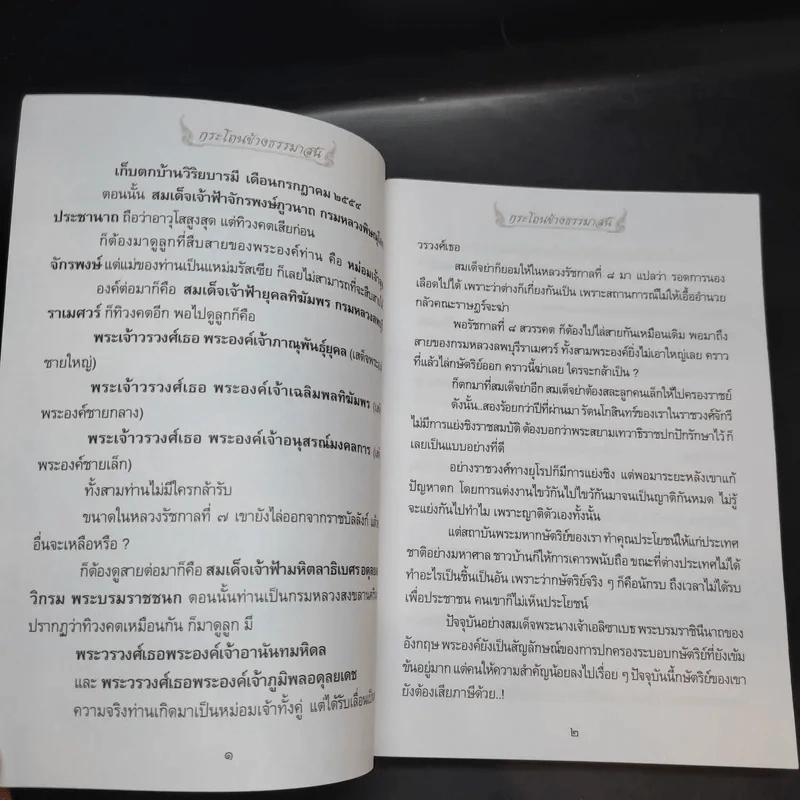 กระโถนข้างธรรมาสน์
เก็บตกบ้านวิริยบารมี เดือนกรกฎาคม ๒๕๕๔
ตอนนั้น สมเด็จเจ้าฟ้าจักรพงษ์ภูวนาถ กรมหลวงพิษณุโลก
ประชานาถ ถือว่าอาวุโสสูงสุด แต่ทิวงคตเสียก่อน
ก็ต้องมาดูลูกที่สืบสายของพระองค์ท่าน คือ หม่อมเจ้าจุล
จักรพงษ์ แต่แม่ของท่านเป็นแหม่มรัสเซีย ก็เลยไม่สามารถที่จะสืบสาย
องค์ต่อมาก็คือ สมเด็จเจ้าฟ้ายุคลทิฆัมพร กรมหลวงลพบุรี
ราเมศวร์ ก็ทิวงคตอีก พอไปดูลูกก็คือ
พระเจ้าวรวงศ์เธอ พระองค์เจ้าภาณุพันธุ์ยุคล (เสด็จพระองค์
ชายใหญ่)
พระเจ้าวรวงศ์เธอ พระองค์เจ้าเฉลิมพลทิฆัมพร
พระองค์ชายกลาง)
พระเจ้าวรวงศ์เธอ พระองค์เจ้าอนุสรณ์มงคลการ
พระองค์ชายเล็ก)
ทั้งสามท่านไม่มีใครกล้ารับ
ขนาดในหลวงรัชกาลที่ ๗ เขายังไล่ออกจากราชบัลลังก์ แล้ว
อื่นจะเหลือหรือ ?
ก็ต้องดูสายต่อมาก็คือ สมเด็จเจ้าฟ้ามหิตลาธิเบศรอดุลยเดช
วิกรม พระบรมราชชนก ตอนนั้นท่านเป็นกรมหลวงสงขลานครินทร์
ปรากฏว่าทิวงคตเหมือนกัน ก็มาดูลูก มี
พระวรวงศ์เธอพระองค์เจ้าอานันทมหิดล
และ พระวรวงศ์เธอพระองค์เจ้าภูมิพลอดุลยเดช
ความจริงท่านเกิดมาเป็นหม่อมเจ้าทั้งคู่ แต่ได้รับเลื่อนเป็น
๑
กระโถนข้างธรรมาสน์
วรวงศ์เธอ
สมเด็จย่าก็ยอมให้ในหลวงรัชกาลที่ ๘ มา แปลว่า รอดการนอง
เลือดไปได้ เพราะว่าต่างก็เกี่ยงกันเป็น เพราะสถานการณ์ไม่ให้เอื้ออำนวย
กลัวคณะราษฎร์จะฆ่า
พอรัชกาลที่ ๘ สวรรคต ก็ต้องไปไล่สายกันเหมือนเดิม พอมาถึง
สายของกรมหลวงลพบุรีราเมศวร์ ทั้งสามพระองค์ยิ่งไม่เอาใหญ่เลย คราว
ที่แล้วไล่กษัตริย์ออก คราวนี้ฆ่าเลย ใครจะกล้าเป็น ?
ก็ตกมาที่สมเด็จย่าอีก สมเด็จย่าต้องสละลูกคนเล็กให้ไปครองราชย์
ดังนั้น..สองร้อยกว่าปีที่ผ่านมา รัตนโกสินทร์ของเราในราชวงศ์จักรี
ไม่มีการแย่งชิงราชสมบัติ ต้องบอกว่าพระสยามเทวาธิราชปกปักรักษาไว้ ก็
เลยเป็นแบบอย่างที่ดี
อย่างราชวงศ์ทางยุโรปก็มีการแย่งชิง แต่พอมาระยะหลังเขาแก้
ปัญหาตก โดยการแต่งงานไขว้กันไปไขว้กันมาจนเป็นญาติกันหมด ไม่รู้
จะแย่งกันไปทำไม เพราะญาติตัวเองทั้งนั้น
แต่สถาบันพระมหากษัตริย์ของเรา ทำคุณประโยชน์ให้แก่ประเทศ
ชาติอย่างมหาศาล ชาวบ้านก็ให้การเคารพนับถือ ขณะที่ต่างประเทศไม่ได้
ทำอะไรเป็นชิ้นเป็นอัน เพราะว่ากษัตริย์จริง ๆ ก็คือนักรบ ถึงเวลาไม่ได้รบ
เพื่อประชาชน คนเขาก็ไม่เห็นประโยชน์
ปัจจุบันอย่างสมเด็จพระนางเจ้าเอลิซาเบธ พระบรมราชินีนาถของ
อังกฤษ พระองค์ยังเป็นสัญลักษณ์ของการปกครองระบอบกษัตริย์ที่ยังเข้ม
ข้นอยู่มาก แต่คนให้ความสำคัญน้อยลงไปเรื่อย ๆ ปัจจุบันนี้กษัตริย์ของเขา
ยังต้องเสียภาษีด้วย..!
๒